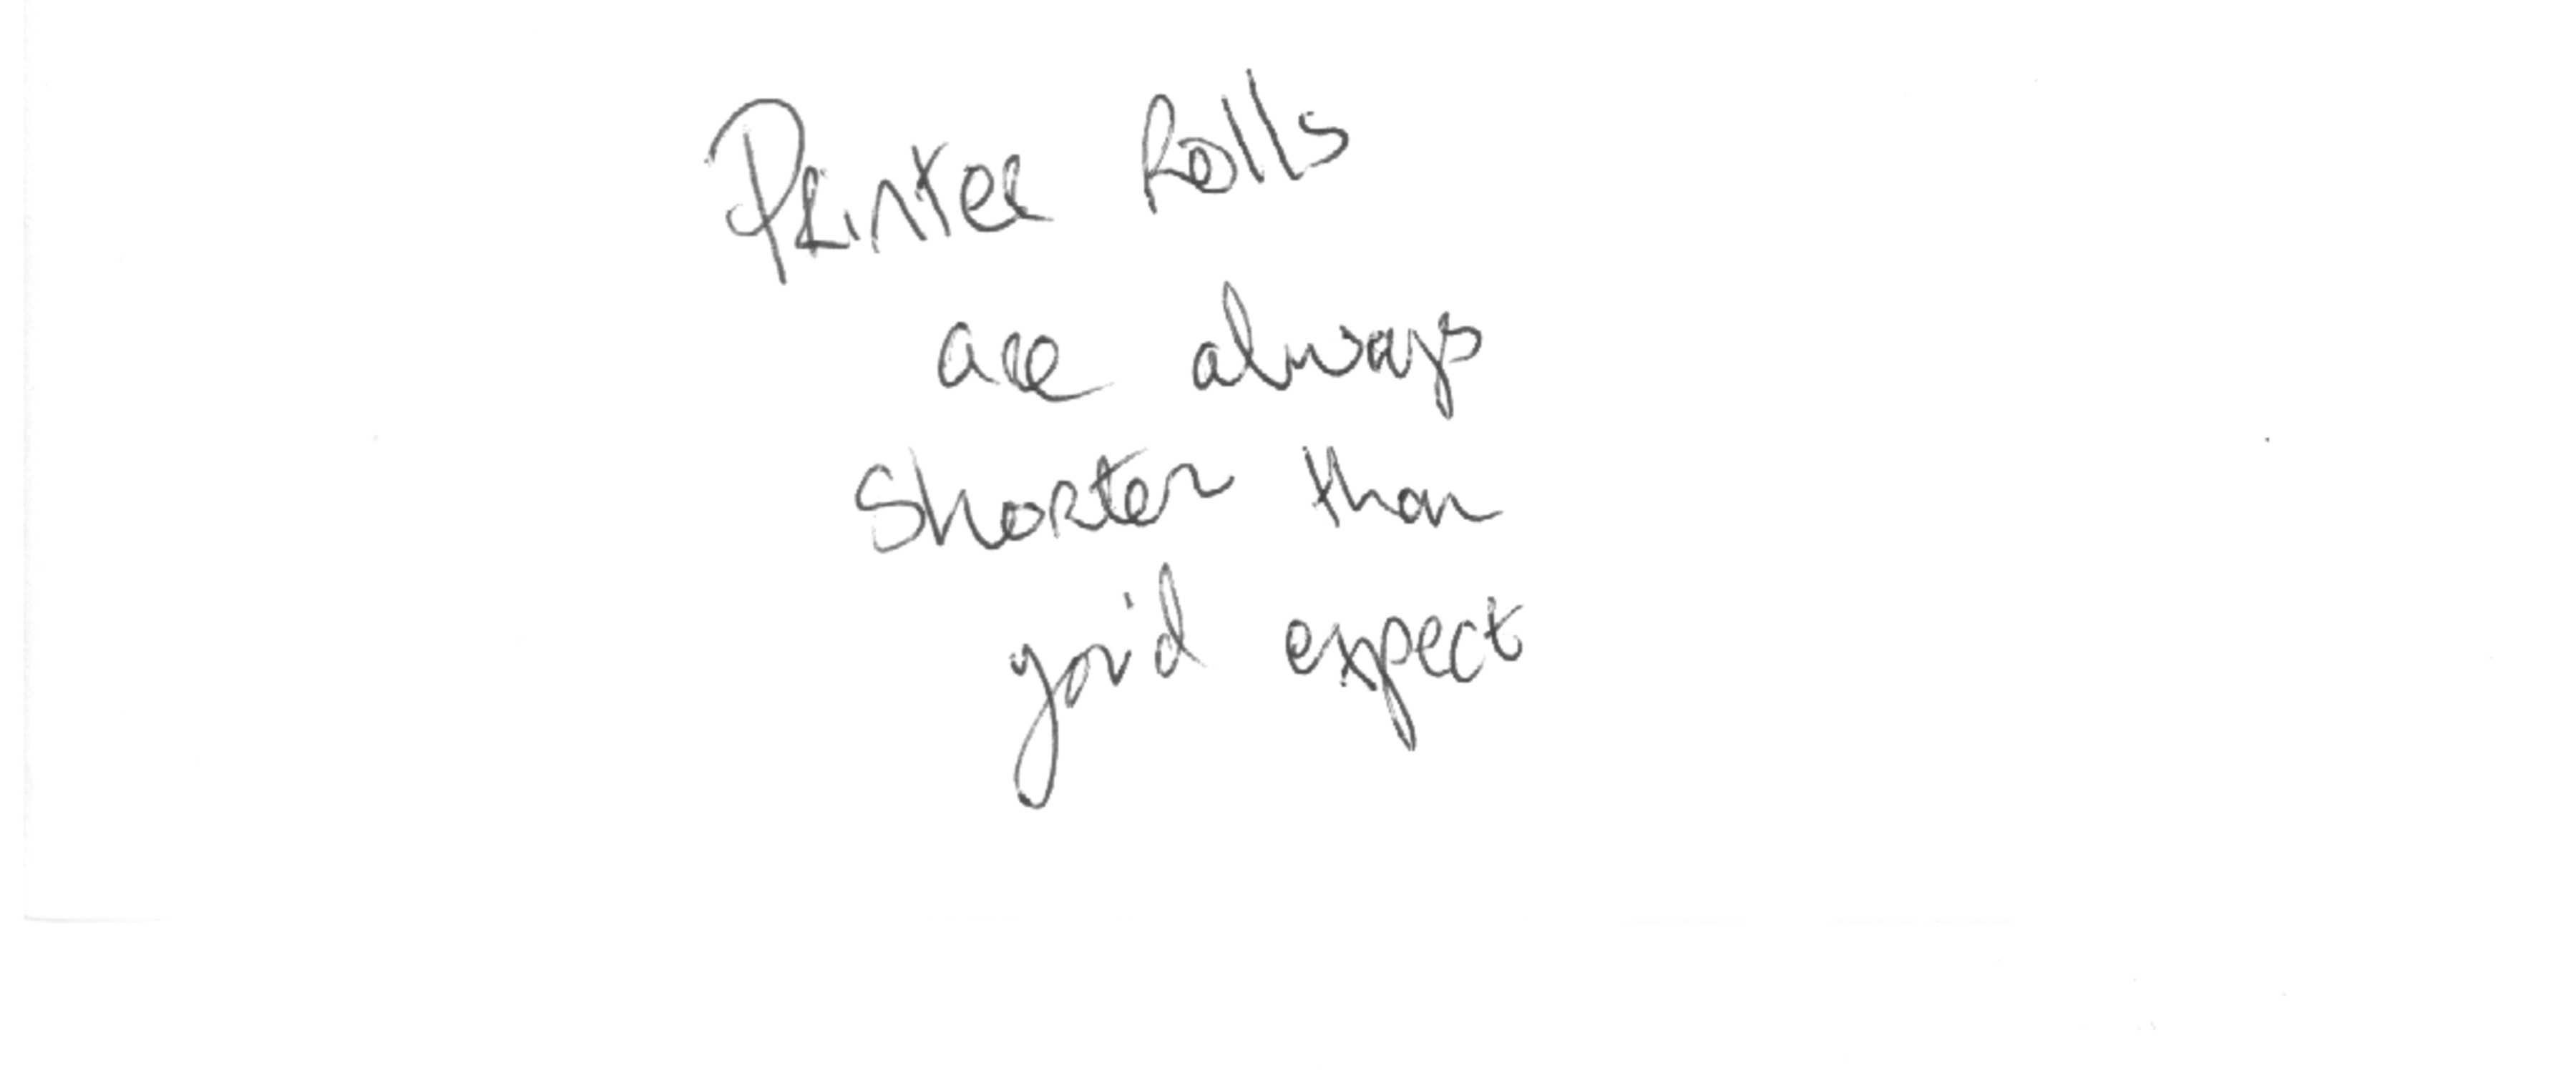 Printer Rolls
are always
Shorter than
you'd expect